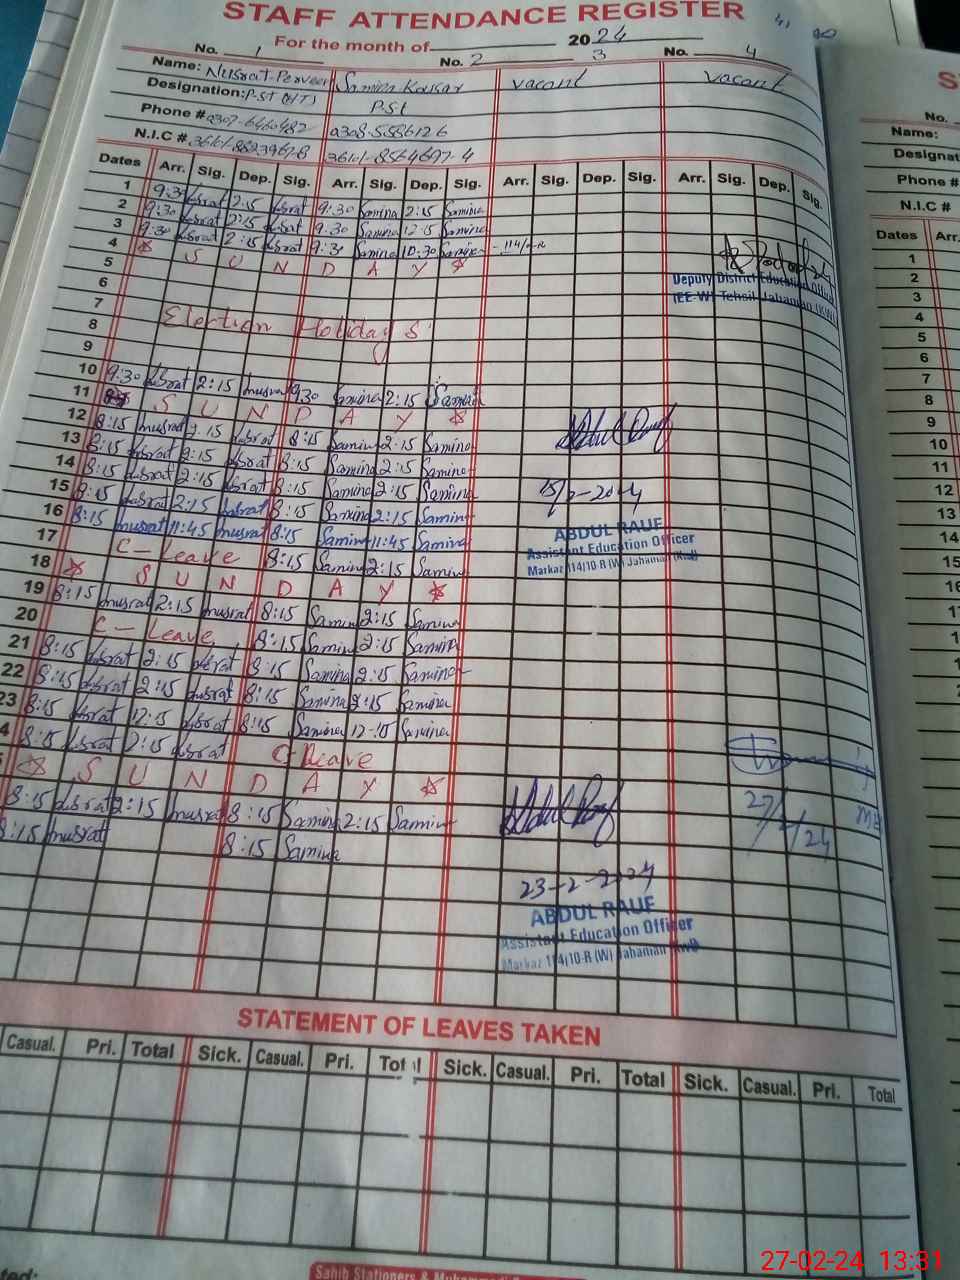 STAFF ATTENDANCE REGISTER
For the month of 2024
No. 1 No. 2 3 No. 4
Name: Nusrat Perveen Samina Kousar vacant vacant
Designation: PST (HT) PST
Phone # 0308-5586126
N.I.C #
Dates Arr. Sig. Dep. Sig. Arr. Sig. Dep. Sig. Arr. Sig. Dep. Sig. Arr. Sig. Dep. Sig.
1 9:30 Nusrat 2:15 Nusrat 9:30 Samina 2:15 Samina
2 9:30 Nusrat 2:15 Nusrat 9:30 Samina 12:15 Samina
3 9:30 Nusrat 2:15 Nusrat 9:30 Samina 10:30 Samina
4 S U N D A Y
5
6
7 Election Holidays
8
9
10 9:30 Nusrat 2:15 Nusrat 9:30 Samina 2:15 Samina
11 S U N D A Y
12 8:15 Nusrat 2:15 Nusrat 8:15 Samina 2:15 Samina
13 8:15 Nusrat 2:15 Nusrat 8:15 Samina 2:15 Samina
14 8:15 Nusrat 2:15 Nusrat 8:15 Samina 2:15 Samina
15 8:15 Nusrat 2:15 Nusrat 8:15 Samina 2:15 Samina
16 8:15 Nusrat 11:45 Nusrat 8:15 Samina 11:45 Samina
17 C-Leave 8:15 Samina 2:15 Samina
18 S U N D A Y
19 8:15 Nusrat 2:15 Nusrat 8:15 Samina 2:15 Samina
20 C-Leave 8:15 Samina 2:15 Samina
21 8:15 Nusrat 2:15 Nusrat 8:15 Samina 2:15 Samina
22 8:15 Nusrat 2:15 Nusrat 8:15 Samina 2:15 Samina
23 8:15 Nusrat 12:15 Nusrat 8:15 Samina 12:15 Samina
4 8:15 Nusrat 2:15 Nusrat C-Leave
S U N D A Y
8:15 Nusrat 2:15 Nusrat 8:15 Samina 2:15 Samina
8:15 Nusrat 8:15 Samina
Deputy District Education Officer
(EE-W) Tehsil Jahanian (KWL)
Abdul Rauf
15/2-2024
ABDUL RAUF
Assistant Education Officer
Markaz 114/10-R (W) Jahanian (Kwl)
27/2/24
Abdul Rauf
23-2-2024
ABDUL RAUF
Assistant Education Officer
Markaz 114/10-R (W) Jahanian (Kwl)
STATEMENT OF LEAVES TAKEN
Casual. Pri. Total Sick. Casual. Pri. Total Sick. Casual. Pri. Total Sick. Casual. Pri. Total
Sahib Stationers &
No.
Name:
Designat
Phone #
N.I.C #
Dates Arr.
1
2
3
4
5
6
7
8
9
10
11
12
13
14
15
16
27-02-24 13:31